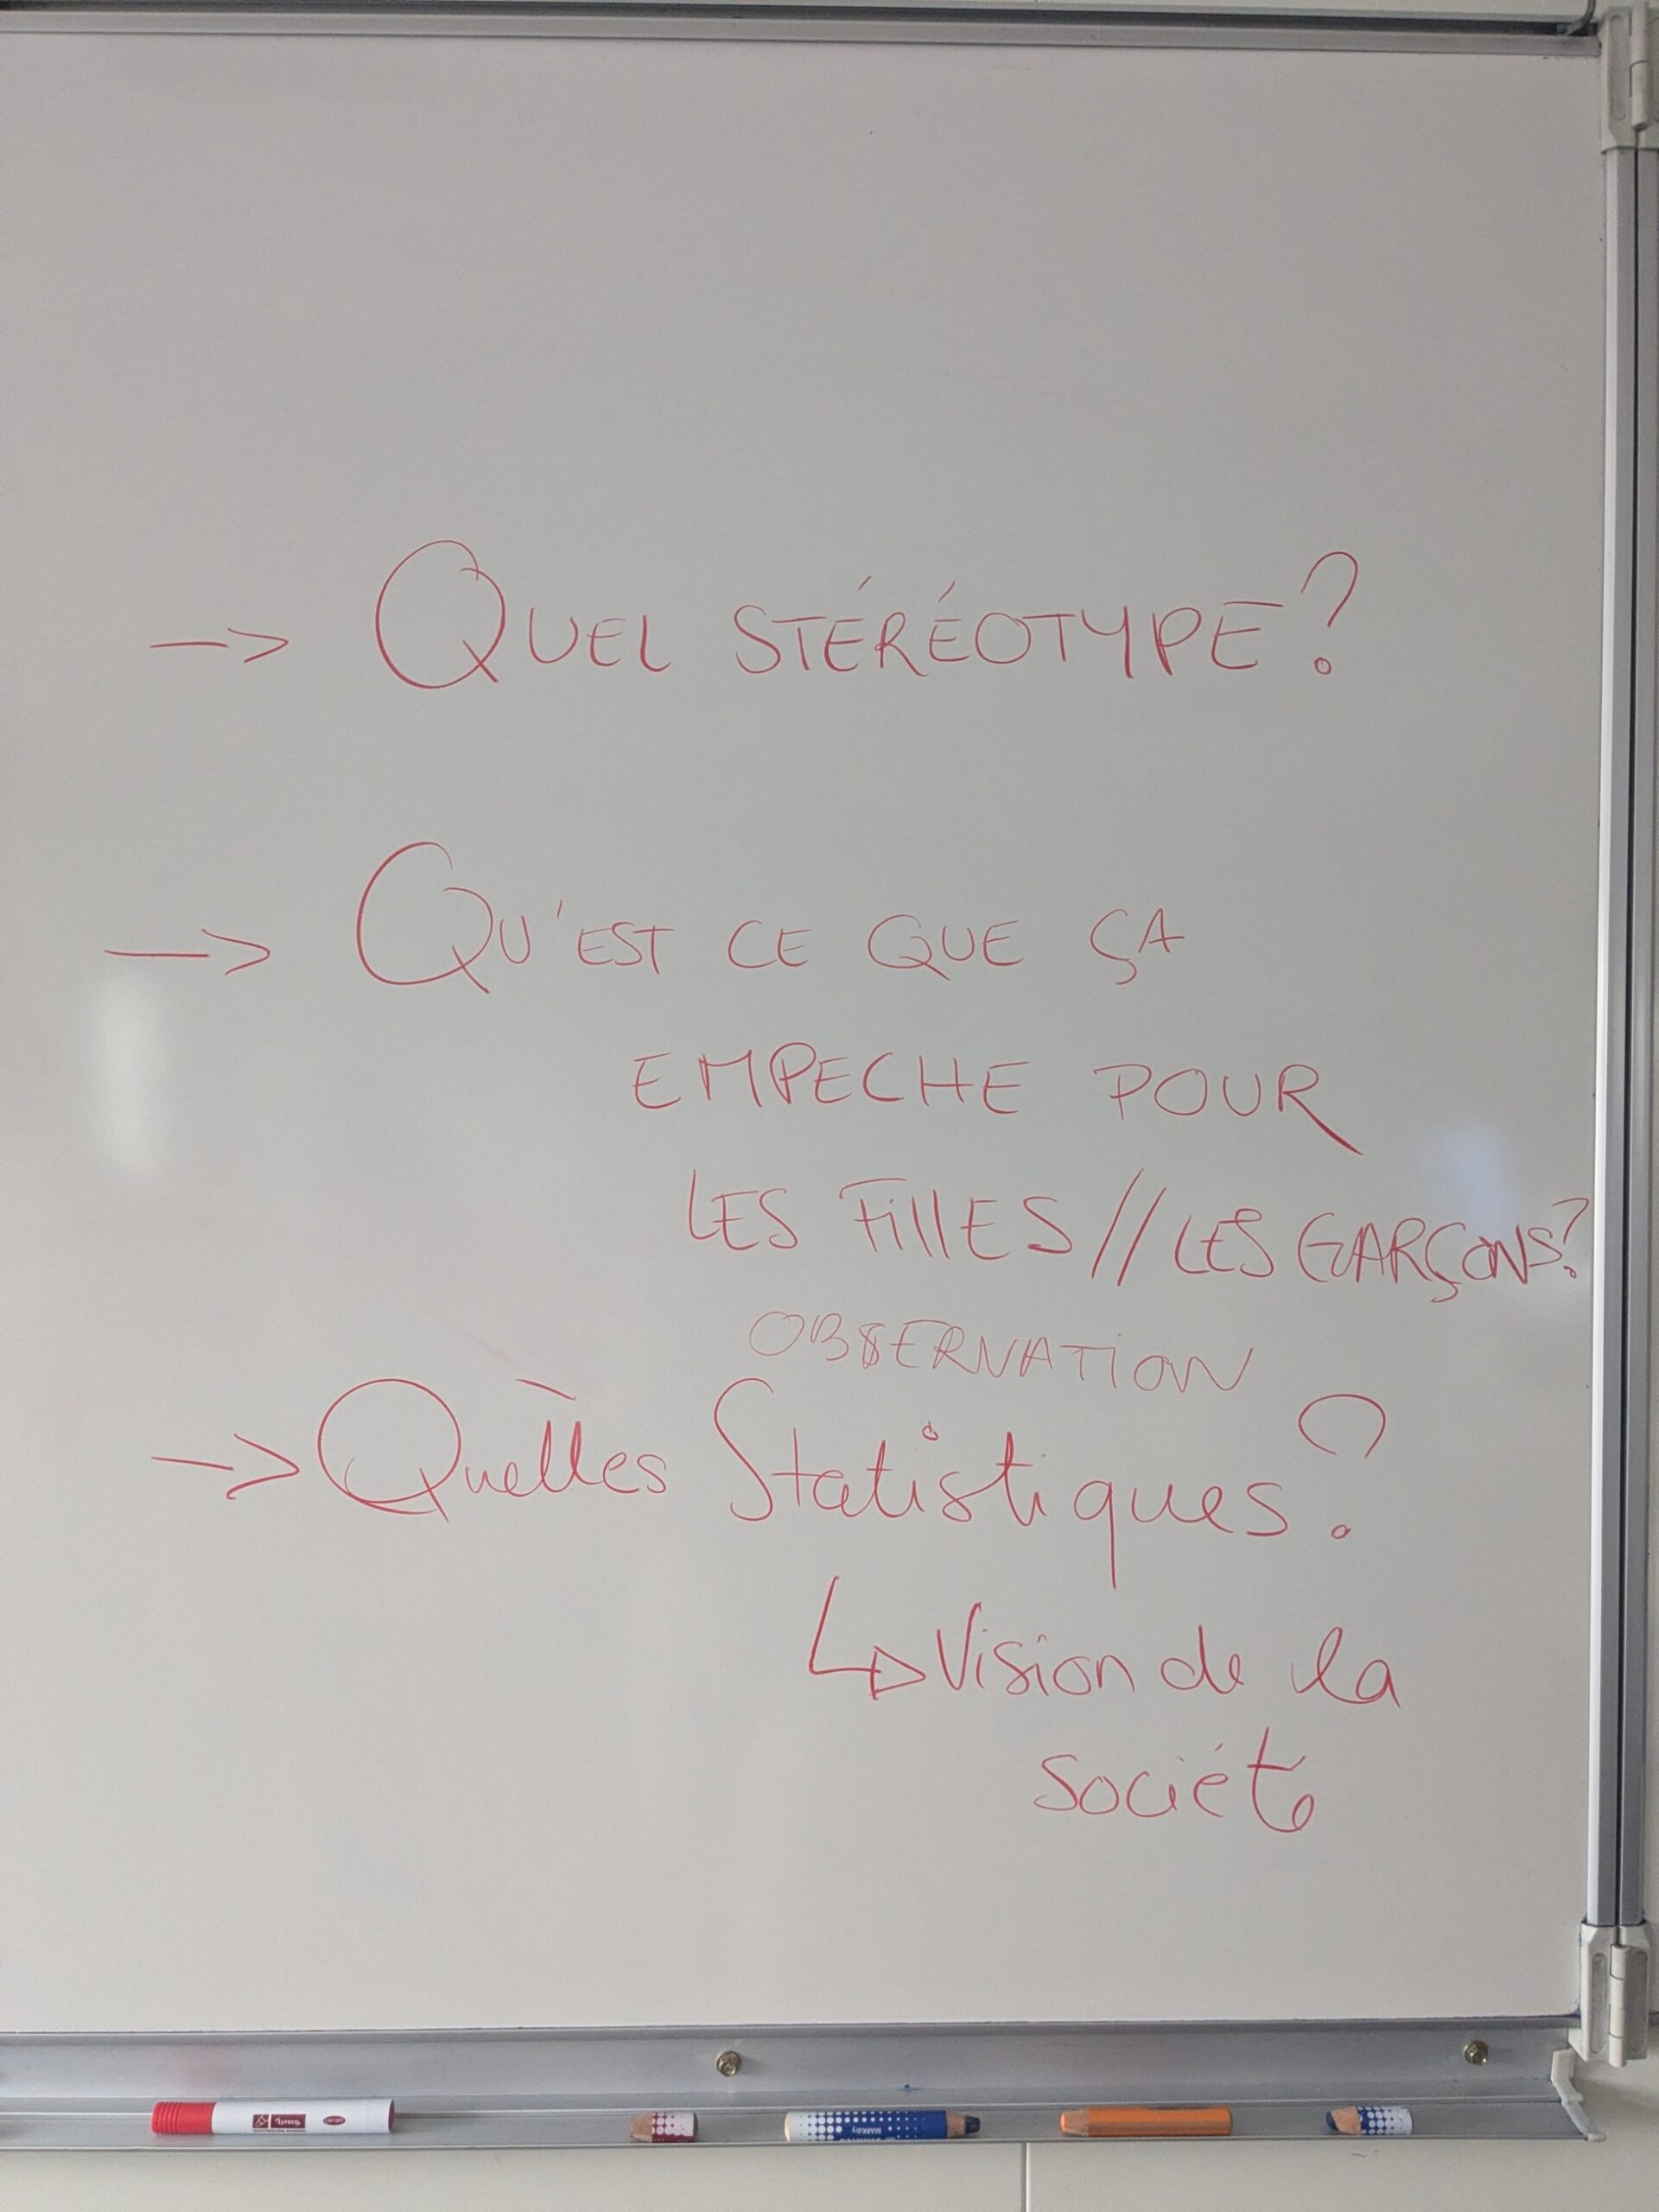 → QUEL STÉRÉOTYPE?
→ QU'EST CE QUE ÇA
EMPECHE POUR
LES FILLES // LES GARÇONS?
OBSERVATION
→ Quelles Statistiques?
↳ Vision de la
société
MARKdry